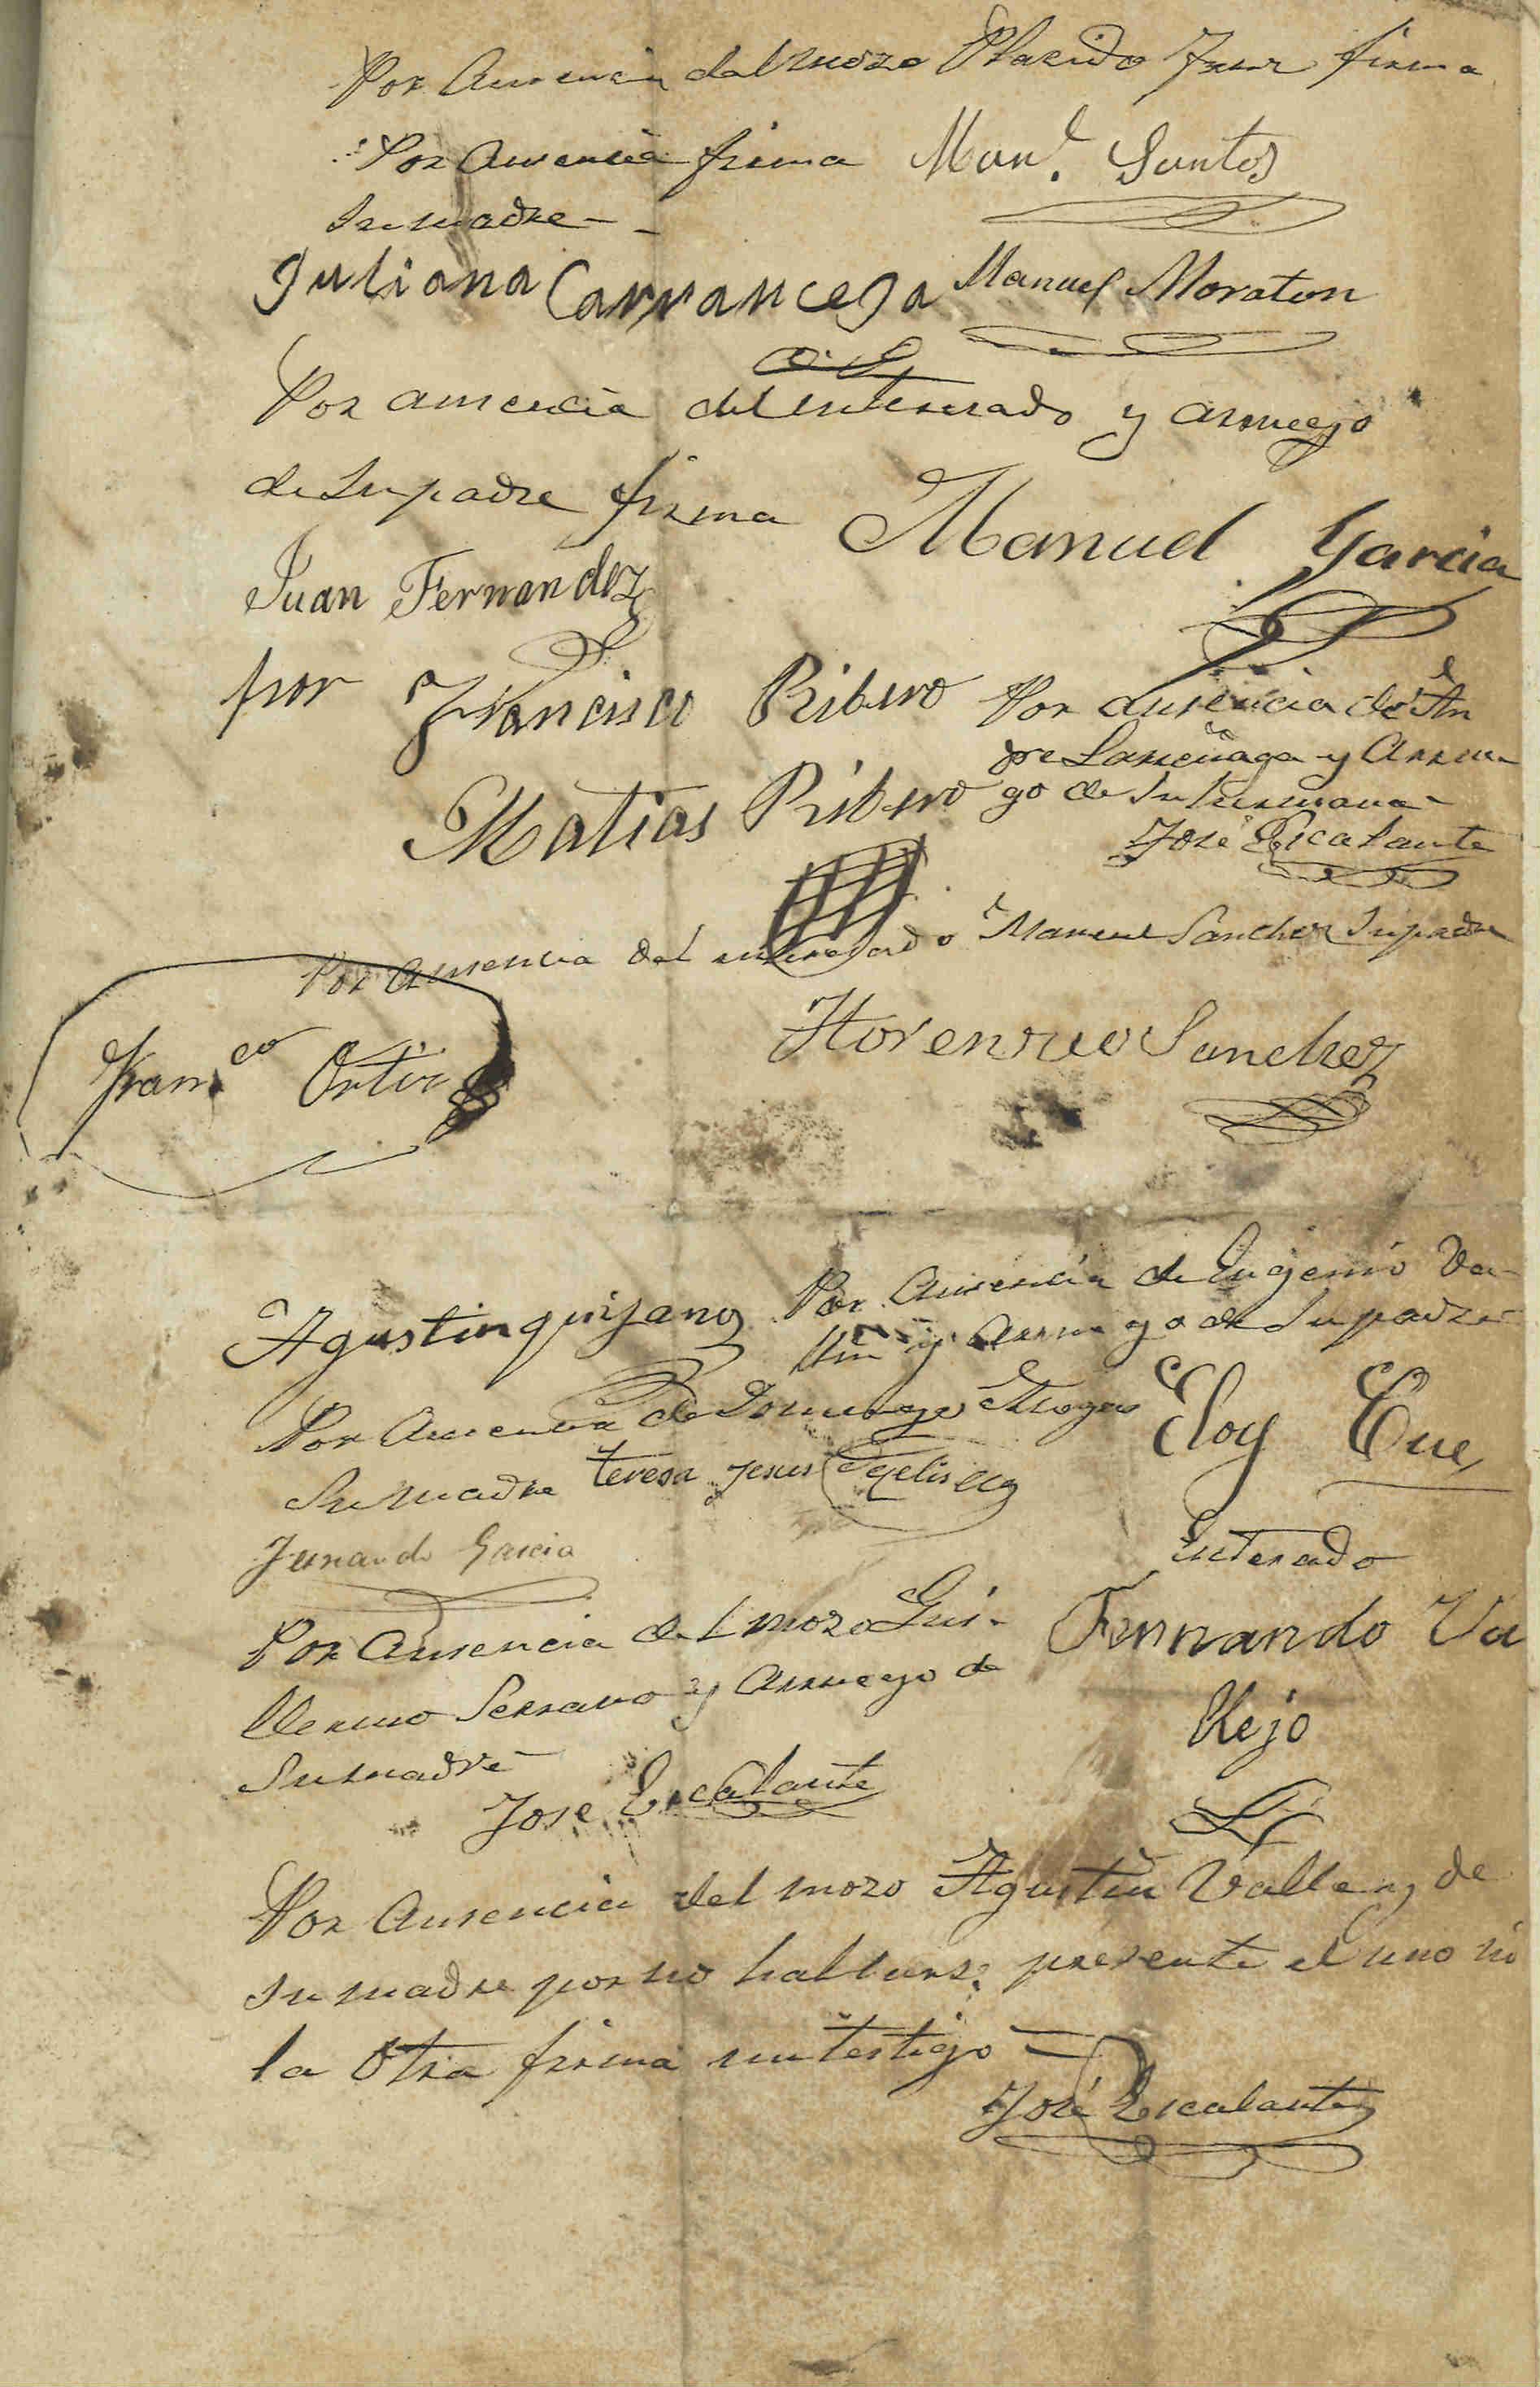 Por Ausencia del mozo Placido firma
Por Ausencia firma Man.l Santos
Su madre
Juliana Carranceja Manuel Moraton
Por ausencia del enterado y arruego
de Su padre firma Manuel Garcia
Juan Fernandez
por Francisco Ribero
Matias Ribero
Por ausencia de An
dre y Arrue
go de Su hermana
José Escalante
Por Ausencia del interesado Manuel Sanchez Su padre
Florencio Sanchez
Fran.co Ortiz
Agustin quijano
Por Ausencia de Eugenio Va
llin y arruego de Su padre
Eloy Cue
Por Ausencia de Domingo
Su madre teresa Jesus
Fernando Garcia
Enterado
Fernando Va
llejo
Por Ausencia del mozo Gui-
llermo Serrano y Arruego de
Su madre
Jose Escalante
Por Ausencia del mozo Agustin Valle y de
su madre por no hallarse presente el uno ni
la Otra firma un testigo
José Escalante